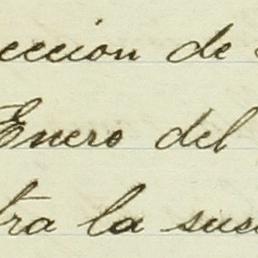 eccion de
Enero del
tra la suc